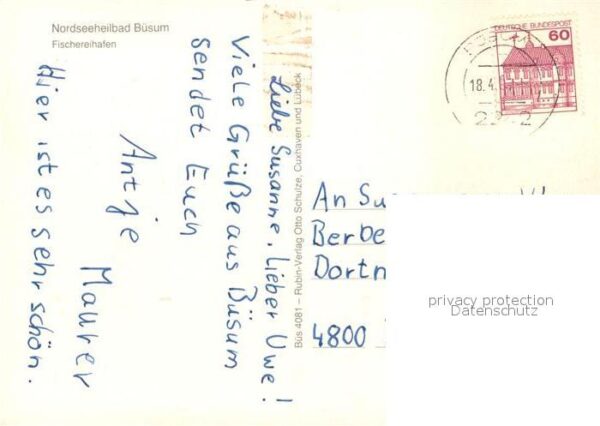 Nordseeheilbad Büsum
Fischereihafen
Liebe Susanne, lieber Uwe!
Viele Grüße aus Büsum
sendet Euch
Antje
Maurer
Hier ist es sehr schön.
Büs 4081 – Rubin-Verlag Otto Schulze, Cuxhaven und Lübeck
DEUTSCHE BUNDESPOST
60
18.4.
An Su
Berbe
Dortm
4800
privacy protection
Datenschutz